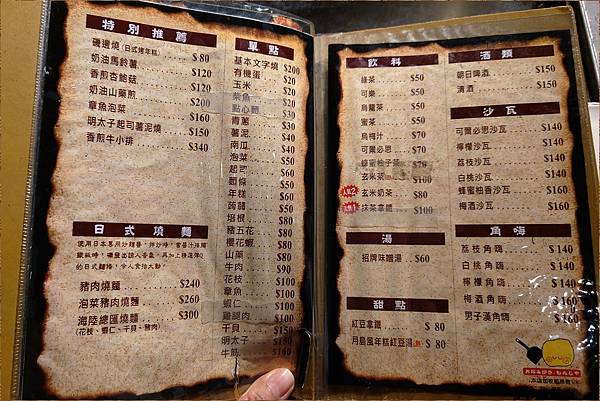 特別推薦
磯邊燒(日式烤年糕) $80
奶油馬鈴薯 $120
香煎杏鮑菇 $120
奶油山藥煎 $200
章魚泡菜 $160
明太子起司薯泥燒 $150
香煎牛小排 $340
日式燒麵
豬肉燒麵 $240
泡菜豬肉燒麵 $260
海陸總匯燒麵 $300
(花枝、蝦仁、干貝、豬肉)
單點
基本文字燒 $200
有機蛋 $20
玉米 $20
柴魚 $20
點心麵 $30
青蔥 $30
薯泥 $40
南瓜 $40
泡菜 $50
起司 $60
麵條 $50
年糕 $60
蒟蒻 $50
培根 $80
豬五花 $80
櫻花蝦 $80
山藥 $80
牛肉 $90
花枝 $100
章魚 $100
蝦仁 $100
雞腿肉 $100
干貝 $150
明太子 $80
牛筋 $160
飲料
綠茶 $50
可樂 $50
烏龍茶 $50
蜜茶 $50
烏梅汁 $70
可爾必思 $70
蜂蜜柚子茶 $70
玄米茶 $100
玄米奶茶 $80
抹茶拿鐵 $100
湯
招牌味噌湯 $60
甜點
紅豆拿鐵 $80
月島風年糕紅豆湯 $80
酒類
朝日啤酒 $150
清酒 $150
沙瓦
可爾必思沙瓦 $140
檸檬沙瓦 $140
荔枝沙瓦 $140
白桃沙瓦 $140
蜂蜜柚香沙瓦 $160
梅酒沙瓦 $160
角嗨
荔枝角嗨 $140
白桃角嗨 $140
檸檬角嗨 $140
梅酒角嗨 $160
男子漢角嗨 $160